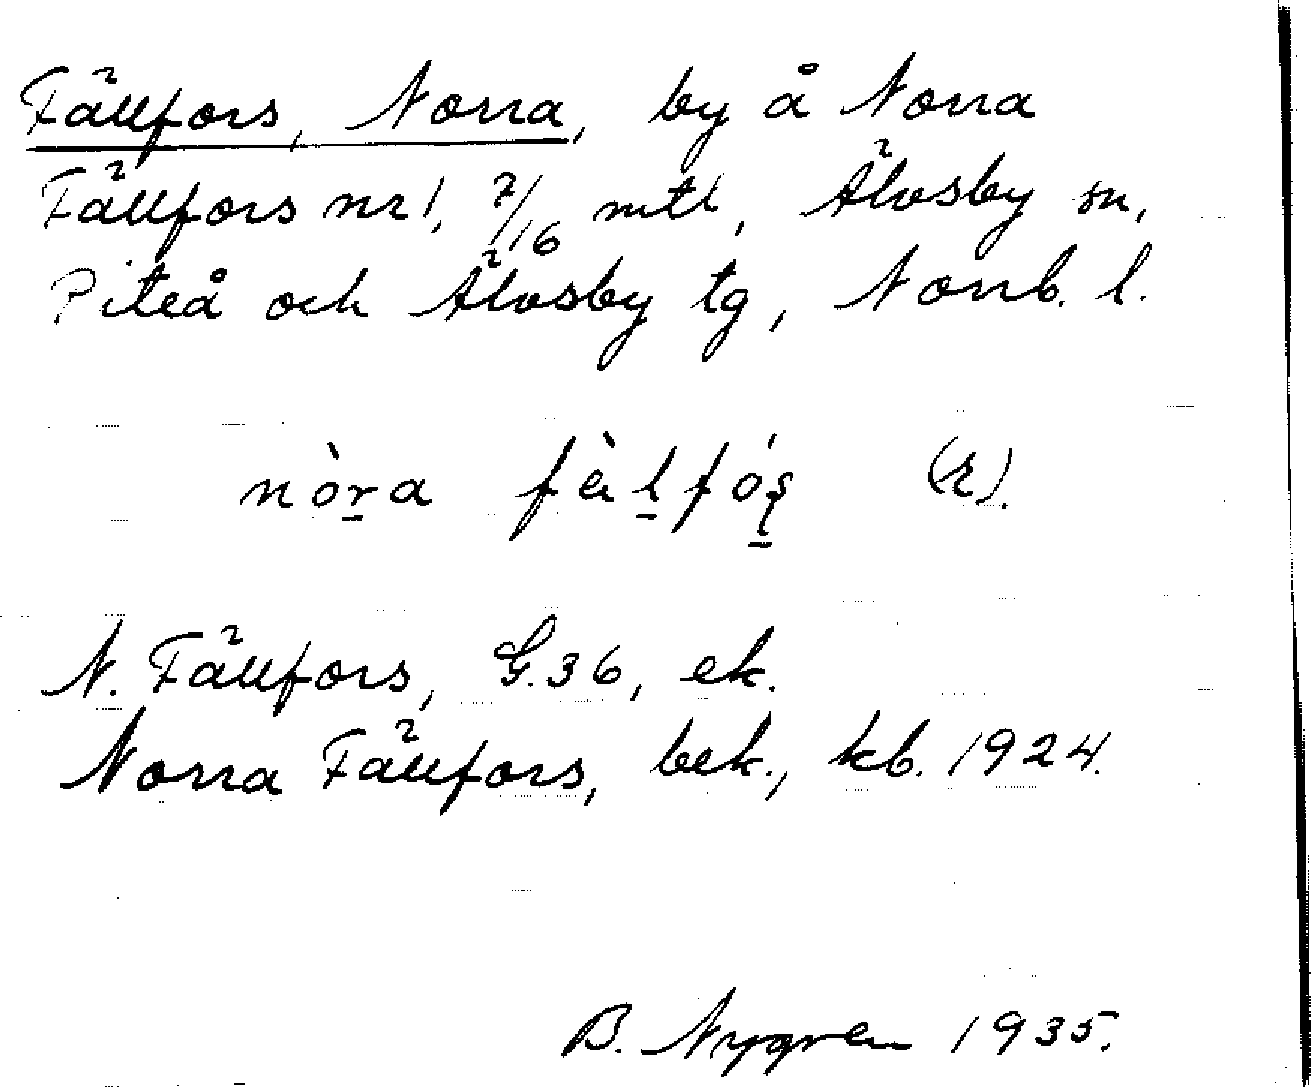 Fällfors, Norra, by å Norra
Fällfors nr 1, 7/16 mtl, Älvsby sn,
Piteå och Älvsby tg, Norrb. l.
nòra fàlfós (R).
N. Fällfors, G.36, ek.
Norra Fällfors, bek., kb. 1924.
B. Nygren 1935.